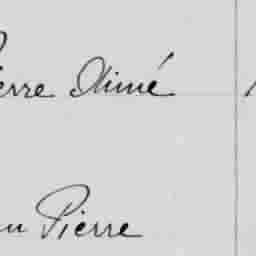 erre Aimé
n Pierre